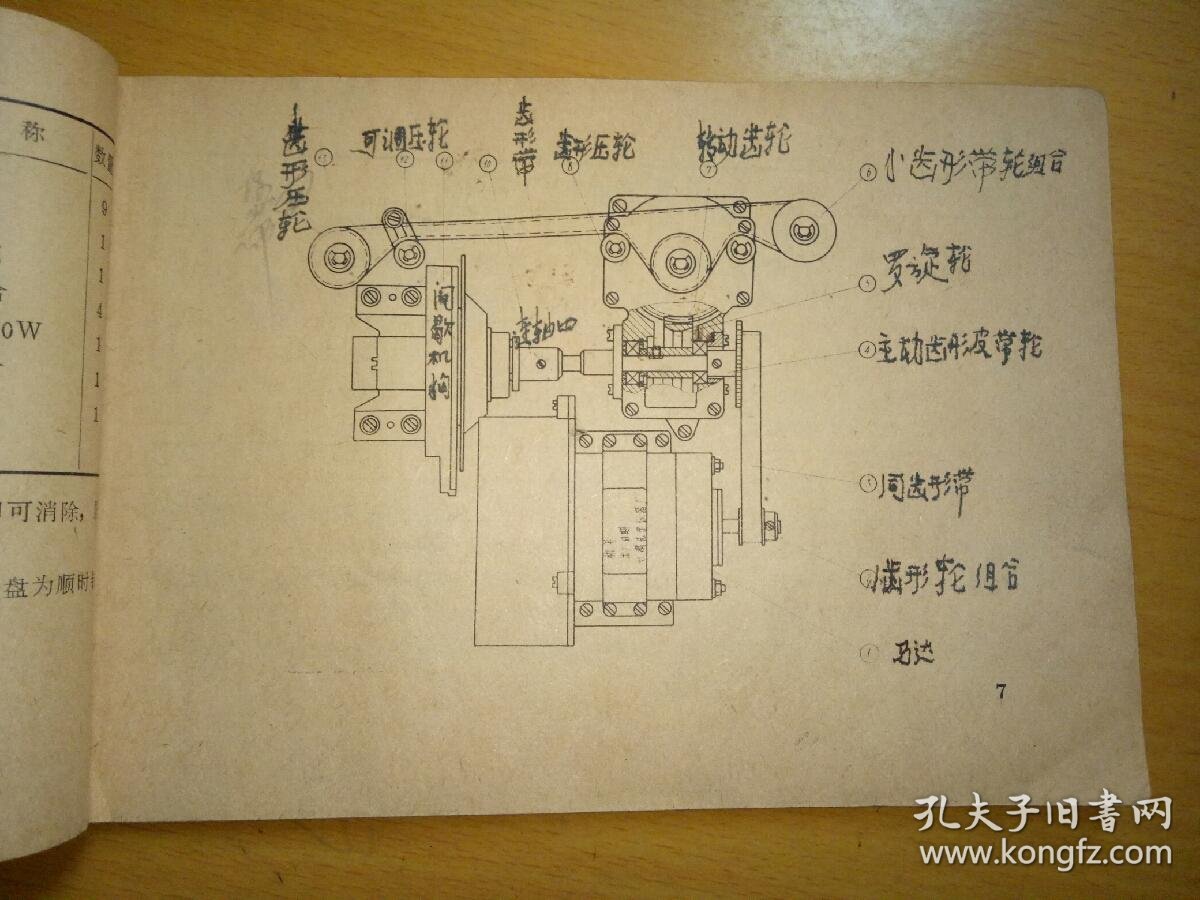 称
数
9
1
1
4
0W
1
1
1
可消除,
盘为顺时
齿形压轮
可调压轮
齿形带
齿形压轮
转动齿轮
⑥ 小齿形带轮组合
⑤ 罗旋轮
④ 主动齿形皮带轮
③ 同齿形带
② 齿形轮组合
① 马达
⑦
⑧
间歇机构
主轴
7
孔夫子旧书网
www.kongfz.com